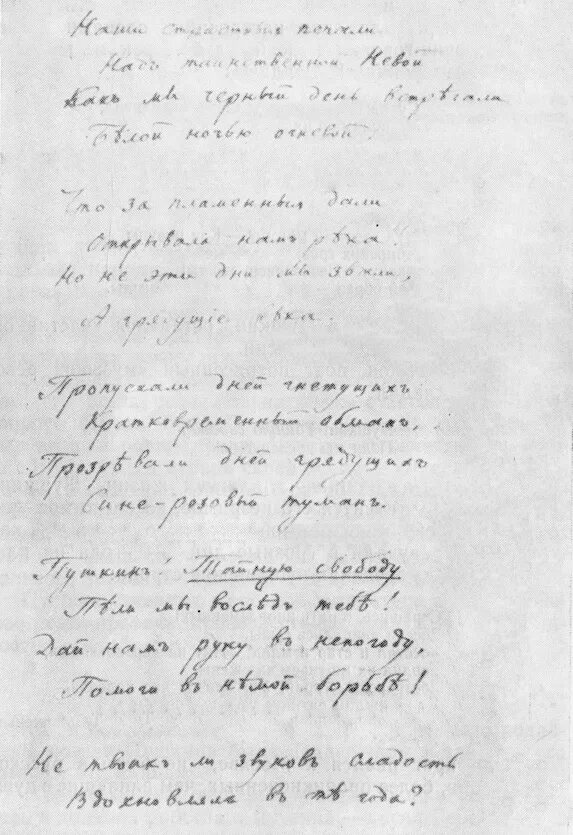 Наши страстныя печали
Надъ таинственной Невой
Какъ мы черный день встрѣчали
Бѣлой ночью огневой.
Что за пламенныя дали
Открывала намъ рѣка!
Но не эти дни мы звали,
А грядущіе вѣка.
Пропуская дней гнетущихъ
Кратковременный обманъ,
Прозрѣвали дней грядущихъ
Сине-розовый туманъ.
Пушкинъ! Тайную свободу
Пѣли мы вослѣдъ тебѣ!
Дай намъ руку въ непогоду,
Помоги въ нѣмой борьбѣ!
Не твоихъ ли звуковъ сладость
Вдохновляла въ тѣ года?